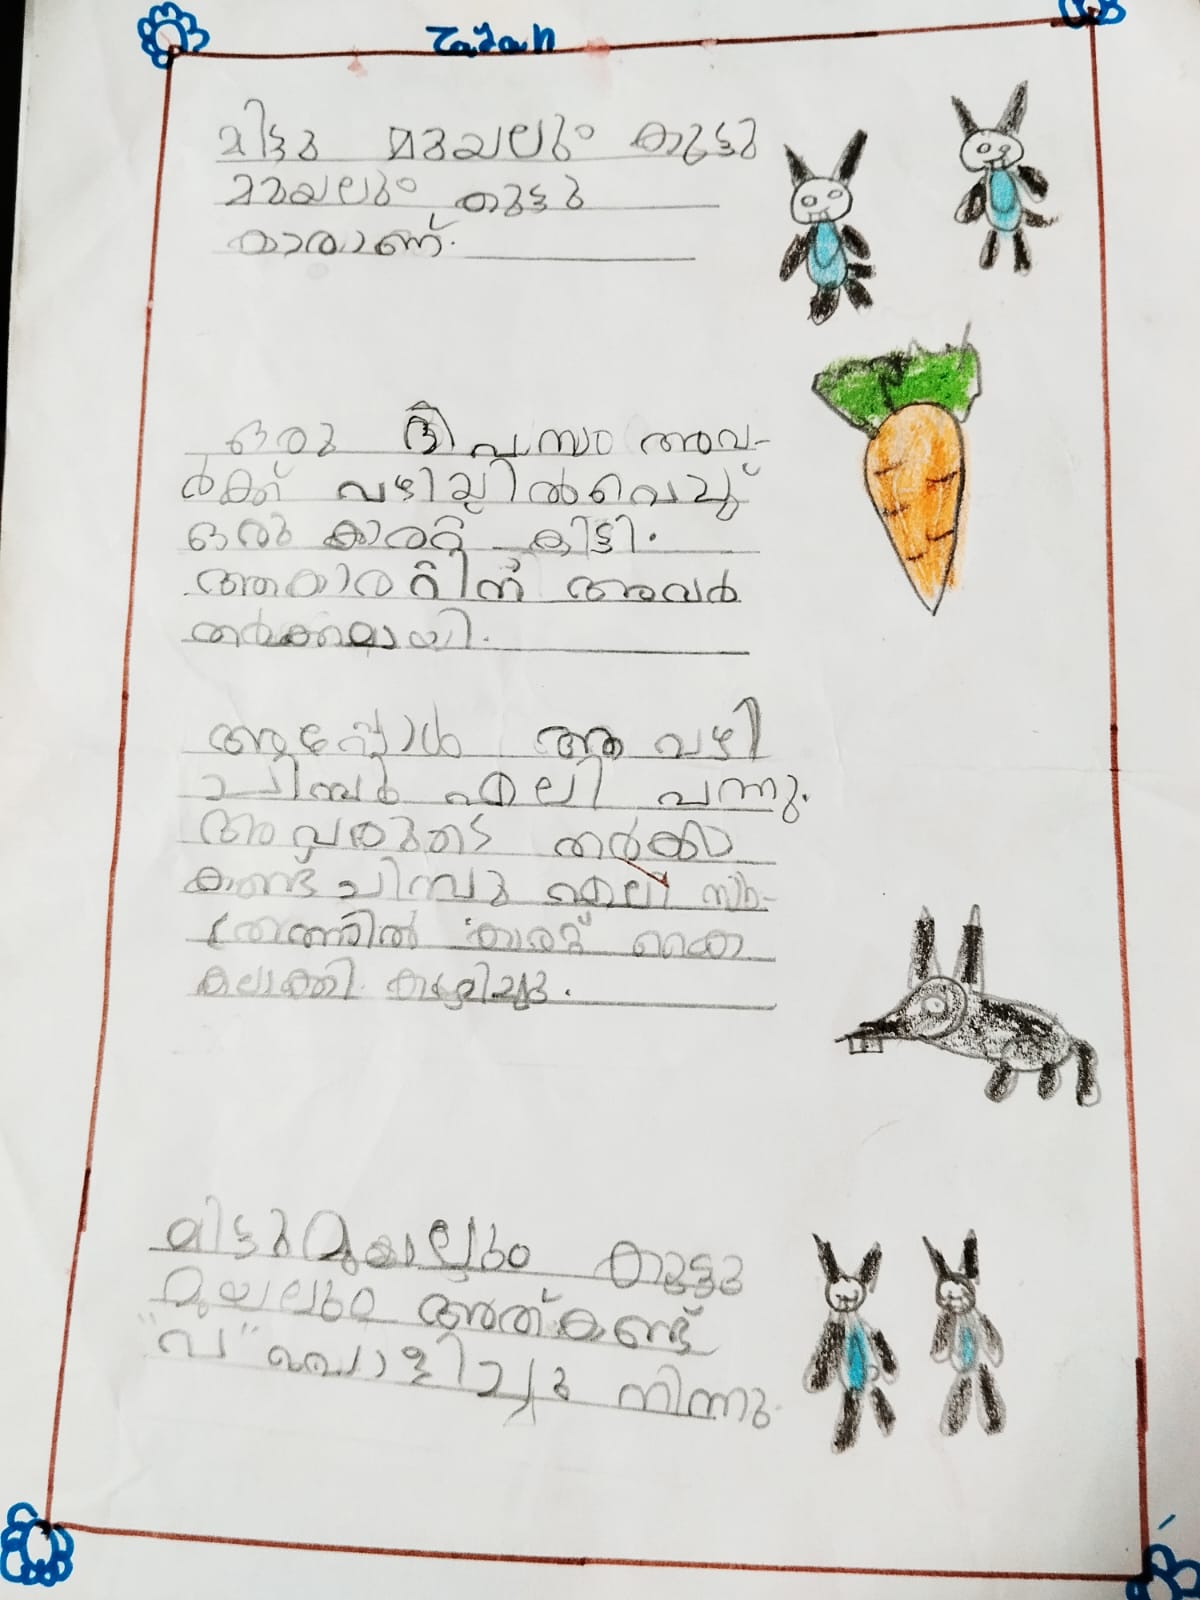 Zayan
മിട്ടു മുയലും കുട്ടു
മുയലും കൂട്ടു
കാരാണ്.
ഒരു ദിവസം അവ-
ർക്ക് വഴിയിൽവെച്ച്
ഒരു കാരറ്റ് കിട്ടി.
ആകാരറ്റിന് അവർ
തർക്കമായി.
അപ്പോൾ ആ വഴി
ചിമ്പൻ എലി വന്നു.
അവരുടെ തർക്കം
കണ്ട് ചിമ്പു എലി സൂ-
ത്രത്തിൽ കാരറ്റ് കൈ
കലാക്കി കഴിച്ചു.
മിട്ടുമുയലും കുട്ടു
മുയലും അത്കണ്ട്
"വാ" പൊളിച്ചു നിന്നു.